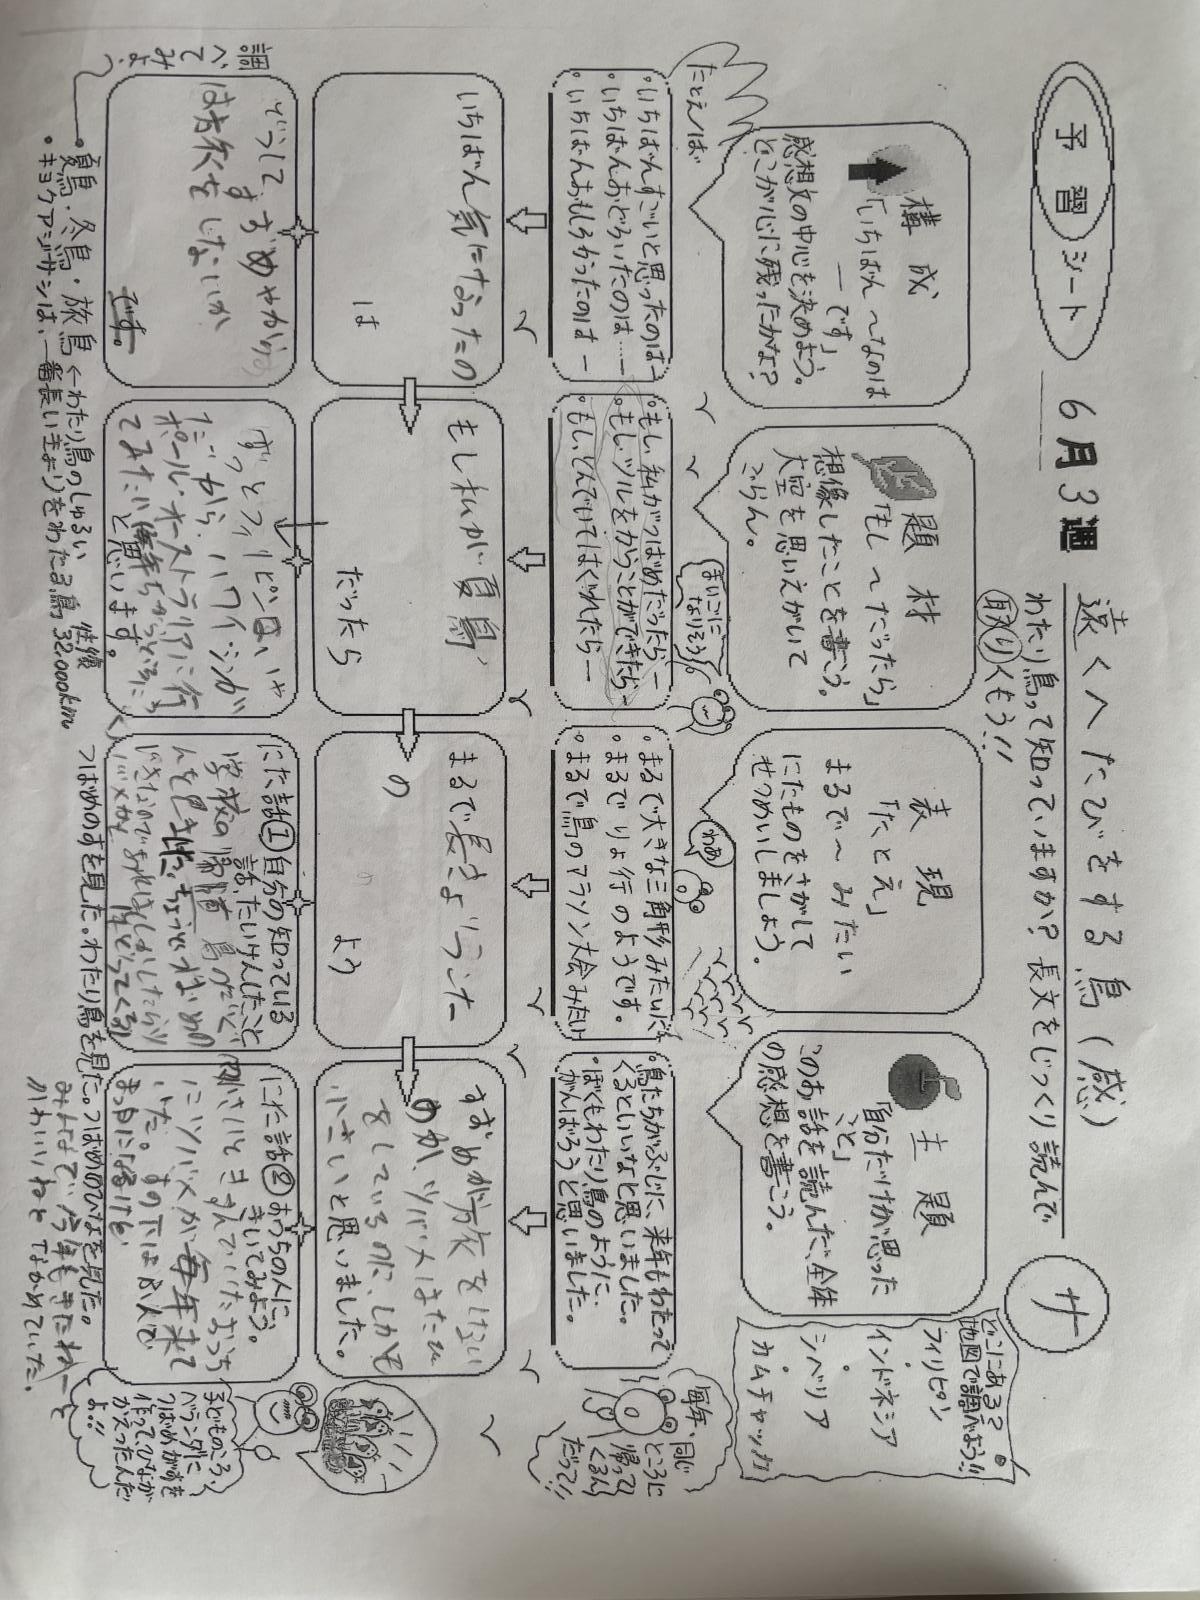 予習シート
6月3週
遠くへたびをする鳥(感)
サ
わたり鳥って知っていますか?長文をじっくり読んで
取りくもう!!
構成
「いちばん〜なのは
―です」
感想文の中心を決めよう。
どこが心に残ったかな?
題材
「もし〜だったら」
想像したことを書こう。
大空を思いえがいて
ごらん。
表現
「たとえ」
まるで〜みたい
にたものをさがして
せつめいしましょう。
主題
「自分だけが思った
こと」
このお話を読んだ、全体
の感想を書こう。
どこにある?
地図で調べよう!!
フィリピン
インドネシア
シベリア
カムチャッカ
たとえば
・いちばんすごいと思ったのは―
・いちばんおどろいたのは…―
・いちばんおもしろかったのは―
・もし、私がつばめだったら―
・もし、ツルをからことができたら―
・もし、とんでいてはぐれたら―
まいごに
なりそう
・まるで大きな三角形みたいだよ
・まるでりょ行のようです。
・まるで鳥のマラソン大会みたい
わあ
・鳥たちがぶじに、来年もわたって
くるといいなと思いました。
・ぼくもわたり鳥のように、
がんばろうと思いました。
毎年、同じ
ところに
帰って
くるん
だって!!
いちばん気になったの
は
もし私が夏鳥、
だったら
まるで長きょりランナー
の
よう
すずめが旅をしない
のか、ツバメはたび
をしているのに、しかも
小さいと思いました。
どうして、
すずめやから
は旅をしないか
です。
ずっとフィリピンはいや
だから、ハワイ・シンガ
ポール・オーストラリアに行
てみたい
と思います。
にた話① 自分の知っている
話、たいけんしたこと
学校の帰道
にた話② おうちの人に
きいてみよう。
にツバメが毎年来て
いた。すの下はふんで
まっ白に
みんなで、今年もきたねーと
かわいいねとながめていた。
子どものころ、
ベランダに
つばめがすを
作ってひなが
かえったんだ
よ!!
調べて
みよ
・夏鳥・冬鳥・旅鳥←わたり鳥のしゅるい
・キョクアジサシは、一番長いきょりをわたる鳥 往復 32,000km
つばめのすを見た。わたり鳥を見た。つばめのひなを見た。